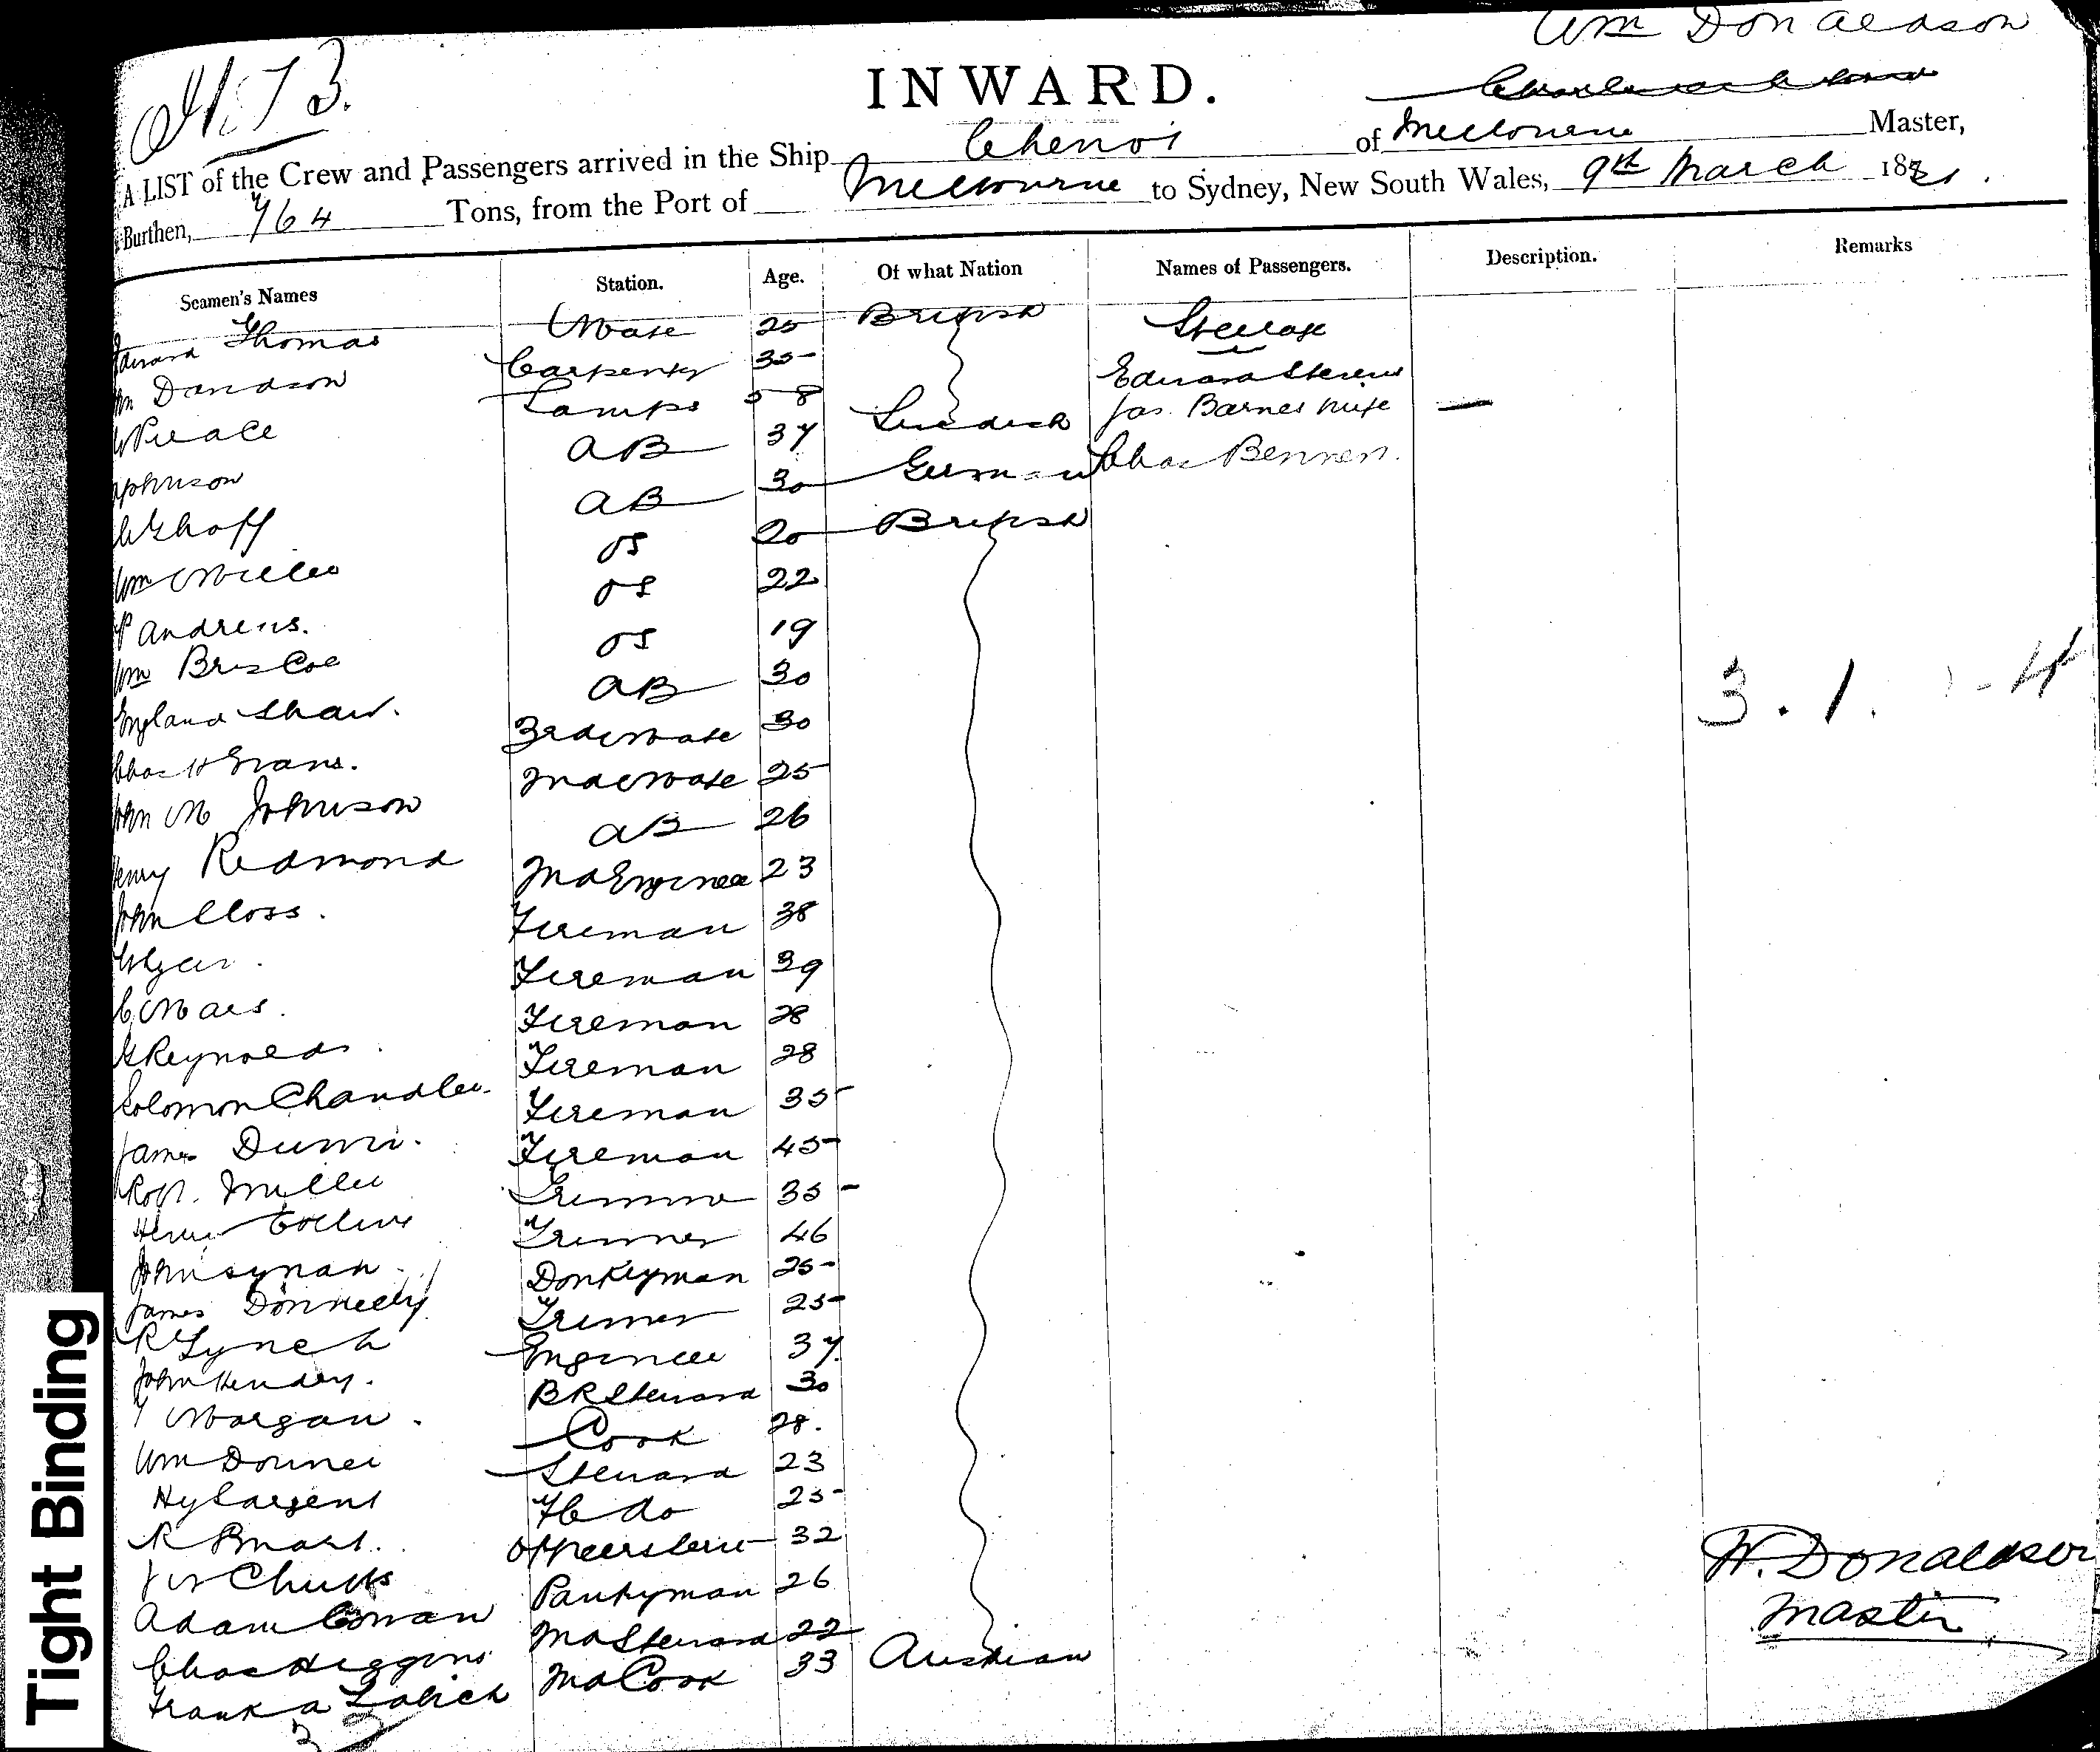 Wm Donaldson
INWARD.
A LIST of the Crew and Passengers arrived in the Ship of Melbourne Master,
Burthen, 764 Tons, from the Port of Melbourne to Sydney, New South Wales, 9th March 18
Seamen's Names Station. Age. Of what Nation Names of Passengers. Description. Remarks
Thomas Mate 25 British Steerage
Davidson Carpenter 35 Edward Stevens
Lamps 58 Jas. Barnes wife —
AB 37 Swedish Chas Bennen
AB 30 German
Wm Miller OS 20 British
P Andrews. OS 22
Wm Briscoe OS 19
England Shaw. AB 30
Chas H Evans. 3rd Mate 30
John M Johnson 2nd Mate 25
Henry Redmond AB 26
John Closs. 2nd Engineer 23
Fireman 38
Fireman 39
Reynolds. Fireman 28
Solomon Chandler. Fireman 28
James Dunn. Fireman 35
Robt. Miller Fireman 45
Henry Collins Trimmer 35
John Synan Trimmer 46
James Donnelly Donkeyman 25
R Lynch Trimmer 25
John Hendry. Engineer 37
Morgan. BR Steward 30
Wm Cook 28.
Hy Sargent Steward 23
R do 25
Chubbs 32
Adam Cowan Pantryman 26
Chas Higgins 2nd Steward 22
Frank A Zabich 2nd Cook 33 Austrian
32
3. 1. - 4
W. Donaldson
Master
Tight Binding